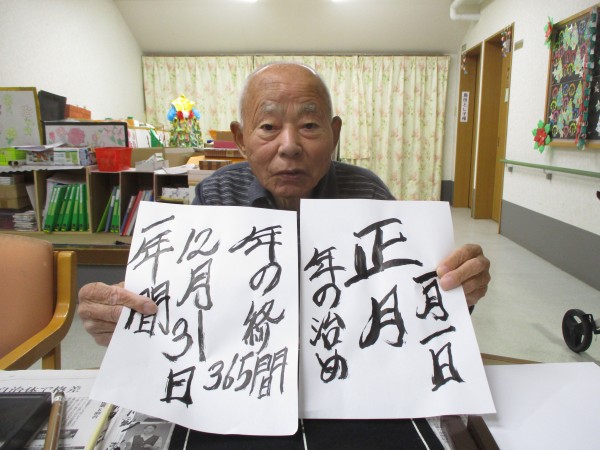 一月一日
正月
年の治め
年の終
365間
12月31日
一年間